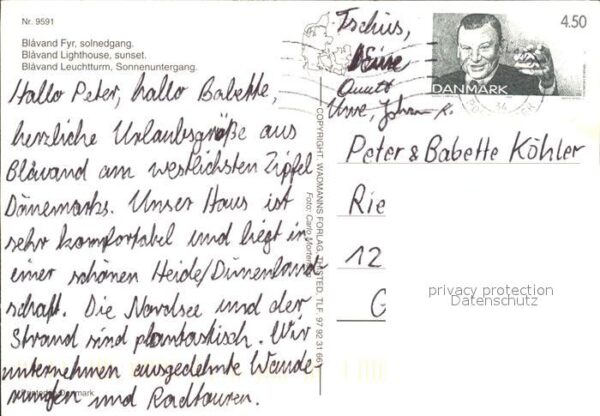 Nr. 9591
Blåvand Fyr, solnedgang.
Blåvand Lighthouse, sunset.
Blåvand Leuchtturm, Sonnenuntergang.
Hallo Peter, hallo Babette,
herzliche Urlaubsgrüße aus
Blåvand am westlichsten Zipfel
Dänemarks. Unser Haus ist
sehr komfortabel und liegt in
einer schönen Heide/Dünenland
schaft. Die Nordsee und der
Strand sind phantastisch. Wir
unternehmen ausgedehnte Wande-
rungen und Radtouren.
Tschüs,
Uwe, Johann K.
COPYRIGHT: WADMANNS FORLAG, THISTED, TLF. 97 92 31 66
Foto: Carlo Mortensen
DANMARK
4.50
Peter & Babette Köhler
Rie
12
G
privacy protection
Datenschutz